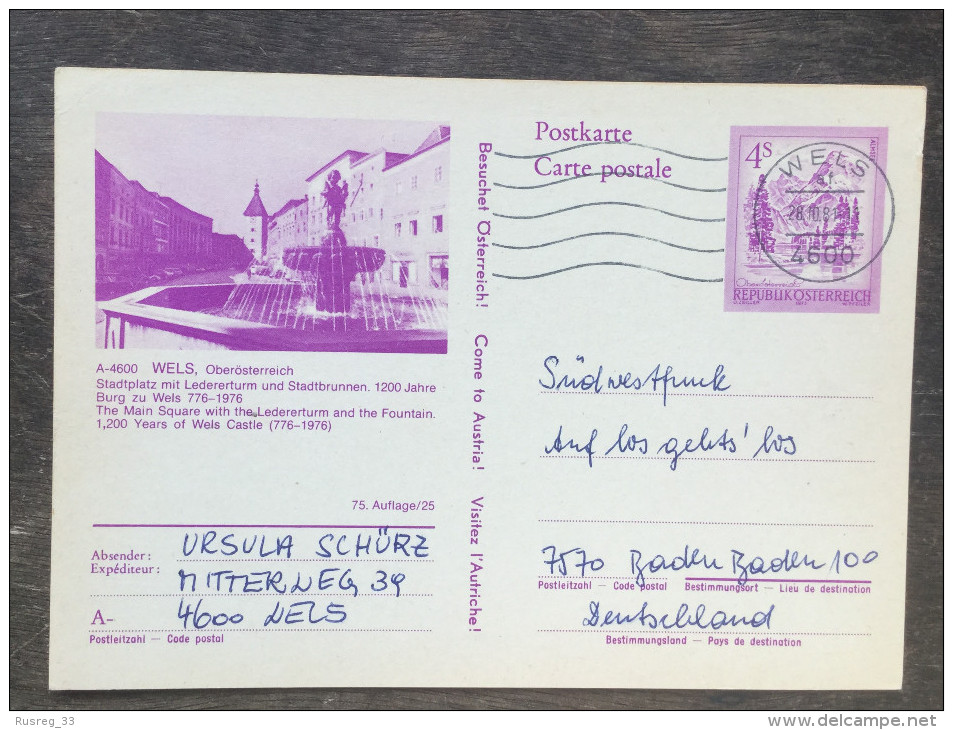 Postkarte
Carte postale
4S
WELS
28.10.81
4600
REPUBLIK ÖSTERREICH
A-4600 WELS, Oberösterreich
Stadtplatz mit Ledererturm und Stadtbrunnen. 1200 Jahre
Burg zu Wels 776–1976
The Main Square with the Ledererturm and the Fountain.
1,200 Years of Wels Castle (776–1976)
75. Auflage/25
Besuchet Österreich! Come to Austria! Visitez l'Autriche!
Südwestfunk
Auf los gehts' los
7570 Baden Baden 100
Postleitzahl — Code postal Bestimmungsort — Lieu de destination
Deutschland
Bestimmungsland — Pays de destination
Absender: URSULA SCHÜRZ
Expéditeur: MITTERWEG 39
A- 4600 WELS
Postleitzahl — Code postal
Rusreg_33
delcampe.net